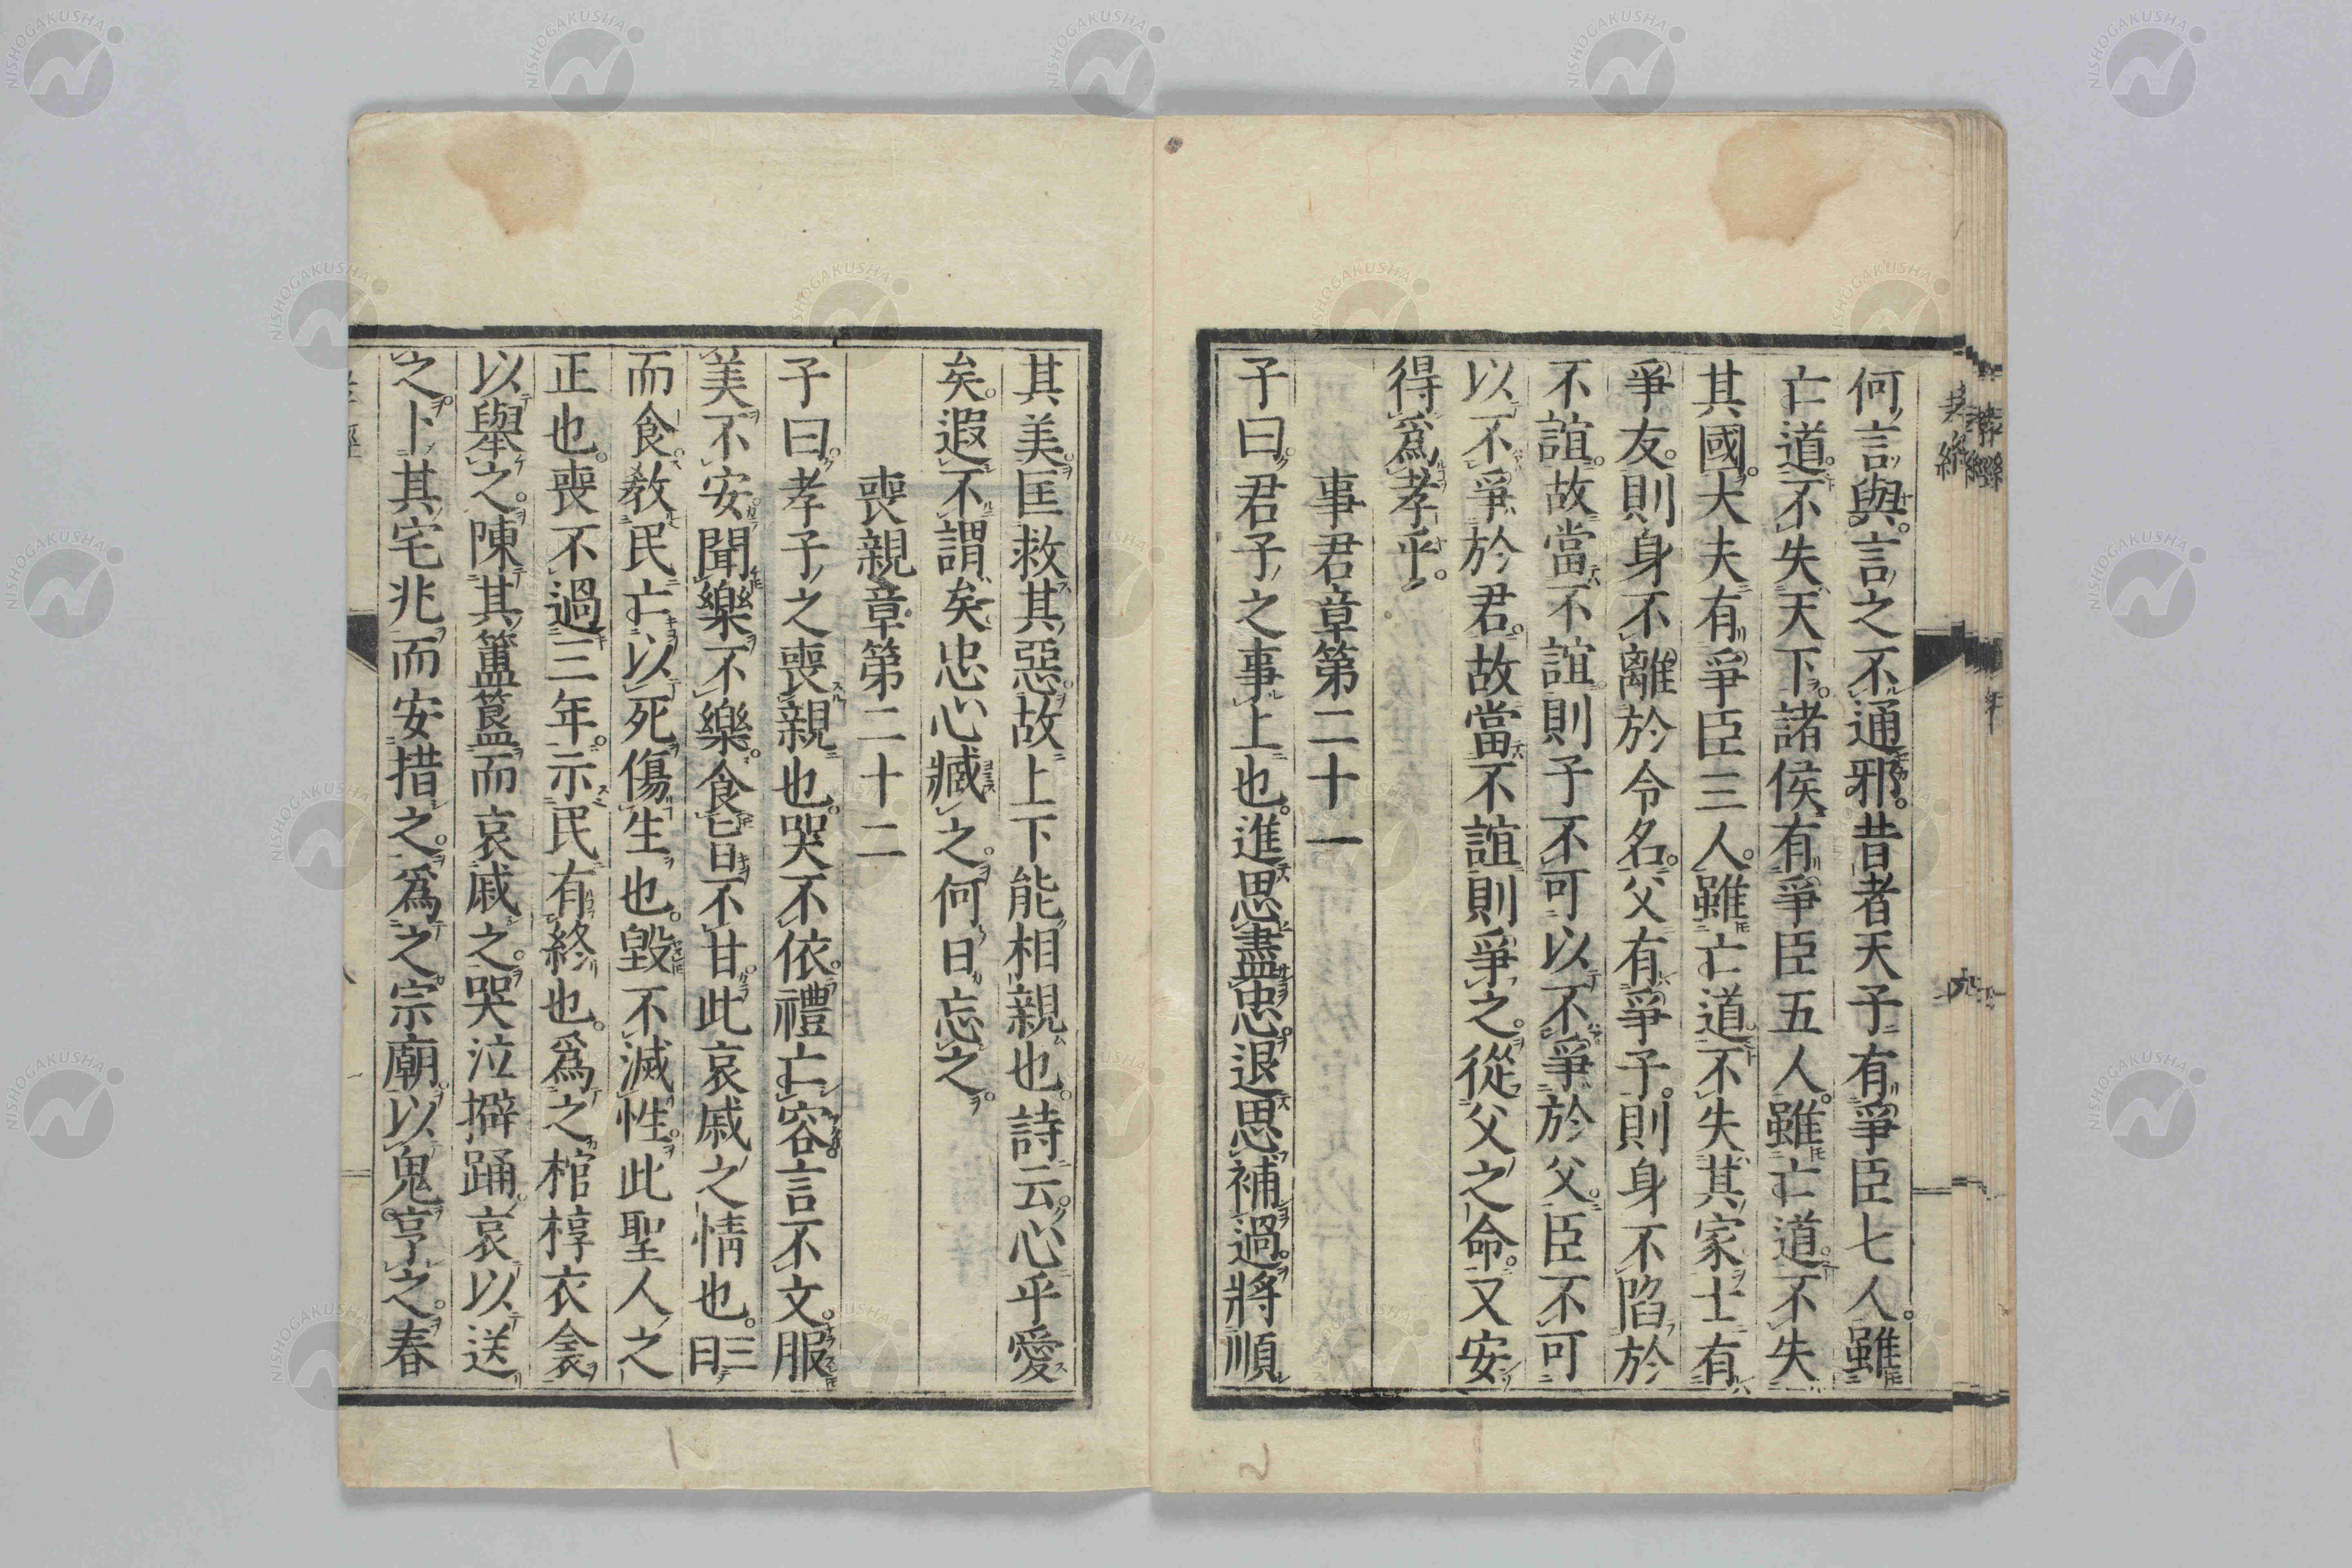 何言與言之不通邪昔者天子有爭臣七人雖
亡道不失天下諸侯有爭臣五人雖亡道不失
其國大夫有爭臣三人雖亡道不失其家士有
爭友則身不離於令名父有爭子則身不陷於
不誼故當不誼則子不可以不爭於父臣不可
以不爭於君故當不誼則爭之從父之命又安
得爲孝乎
事君章第二十一
子曰君子之事上也進思盡忠退思補過將順
其美匡救其惡故上下能相親也詩云心乎愛
矣遐不謂矣忠心臧之何日忘之
喪親章第二十二
子曰孝子之喪親也哭不依禮亡容言不文服
美不安聞樂不樂食旨不甘此哀戚之情也三日
而食教民亡以死傷生也毀不滅性此聖人之
正也喪不過三年示民有終也爲之棺椁衣衾
以舉之陳其簠簋而哀戚之哭泣擗踊哀以送
之卜其宅兆而安措之爲之宗廟以鬼亨之春
NISHOGAKUSHA